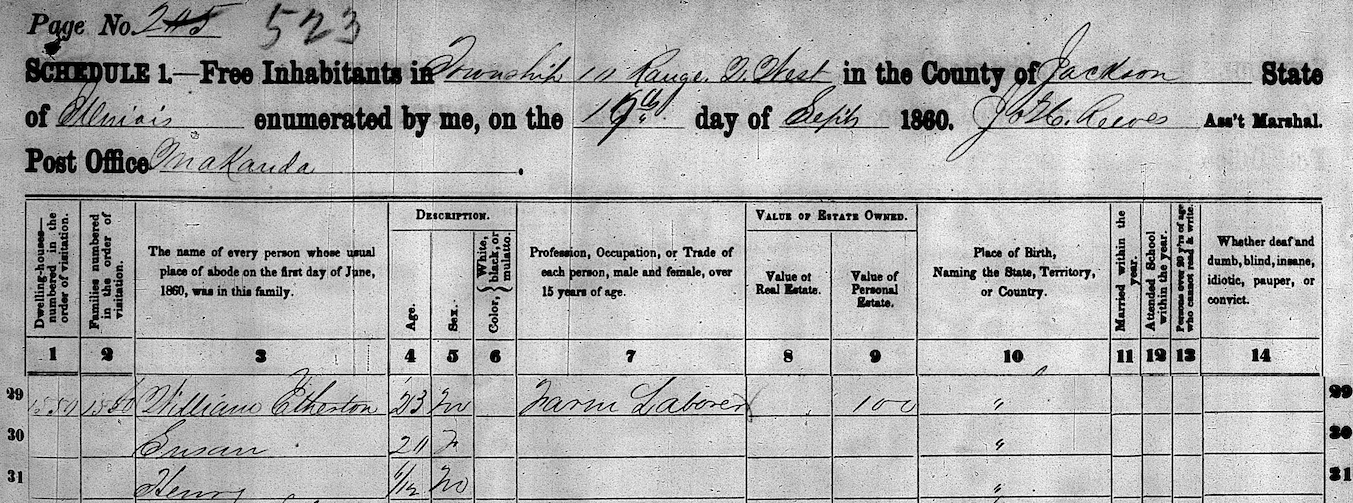 Page No. 205 523
SCHEDULE 1.—Free Inhabitants in Township 10 Range 1 West in the County of Jackson State
of Illinois enumerated by me, on the 19th day of Sept 1860. Reeves Ass't Marshal.
Post Office Makanda.
Dwelling-houses—numbered in the order of visitation.
Families numbered in the order of visitation.
The name of every person whose usual place of abode on the first day of June, 1860, was in this family.
DESCRIPTION.
Age.
Sex.
Color, { White, black, or mulatto.
Profession, Occupation, or Trade of each person, male and female, over 15 years of age.
VALUE OF ESTATE OWNED.
Value of Real Estate.
Value of Personal Estate.
Place of Birth, Naming the State, Territory, or Country.
Married within the year.
Attended School within the year.
Persons over 20 y'rs of age who cannot read & write.
Whether deaf and dumb, blind, insane, idiotic, pauper, or convict.
1 2 3 4 5 6 7 8 9 10 11 12 13 14
29 William Etherton 23 m Farm Laborer 100 " 29
30 Susan 20 f " 30
31 Henry /12 m " 31